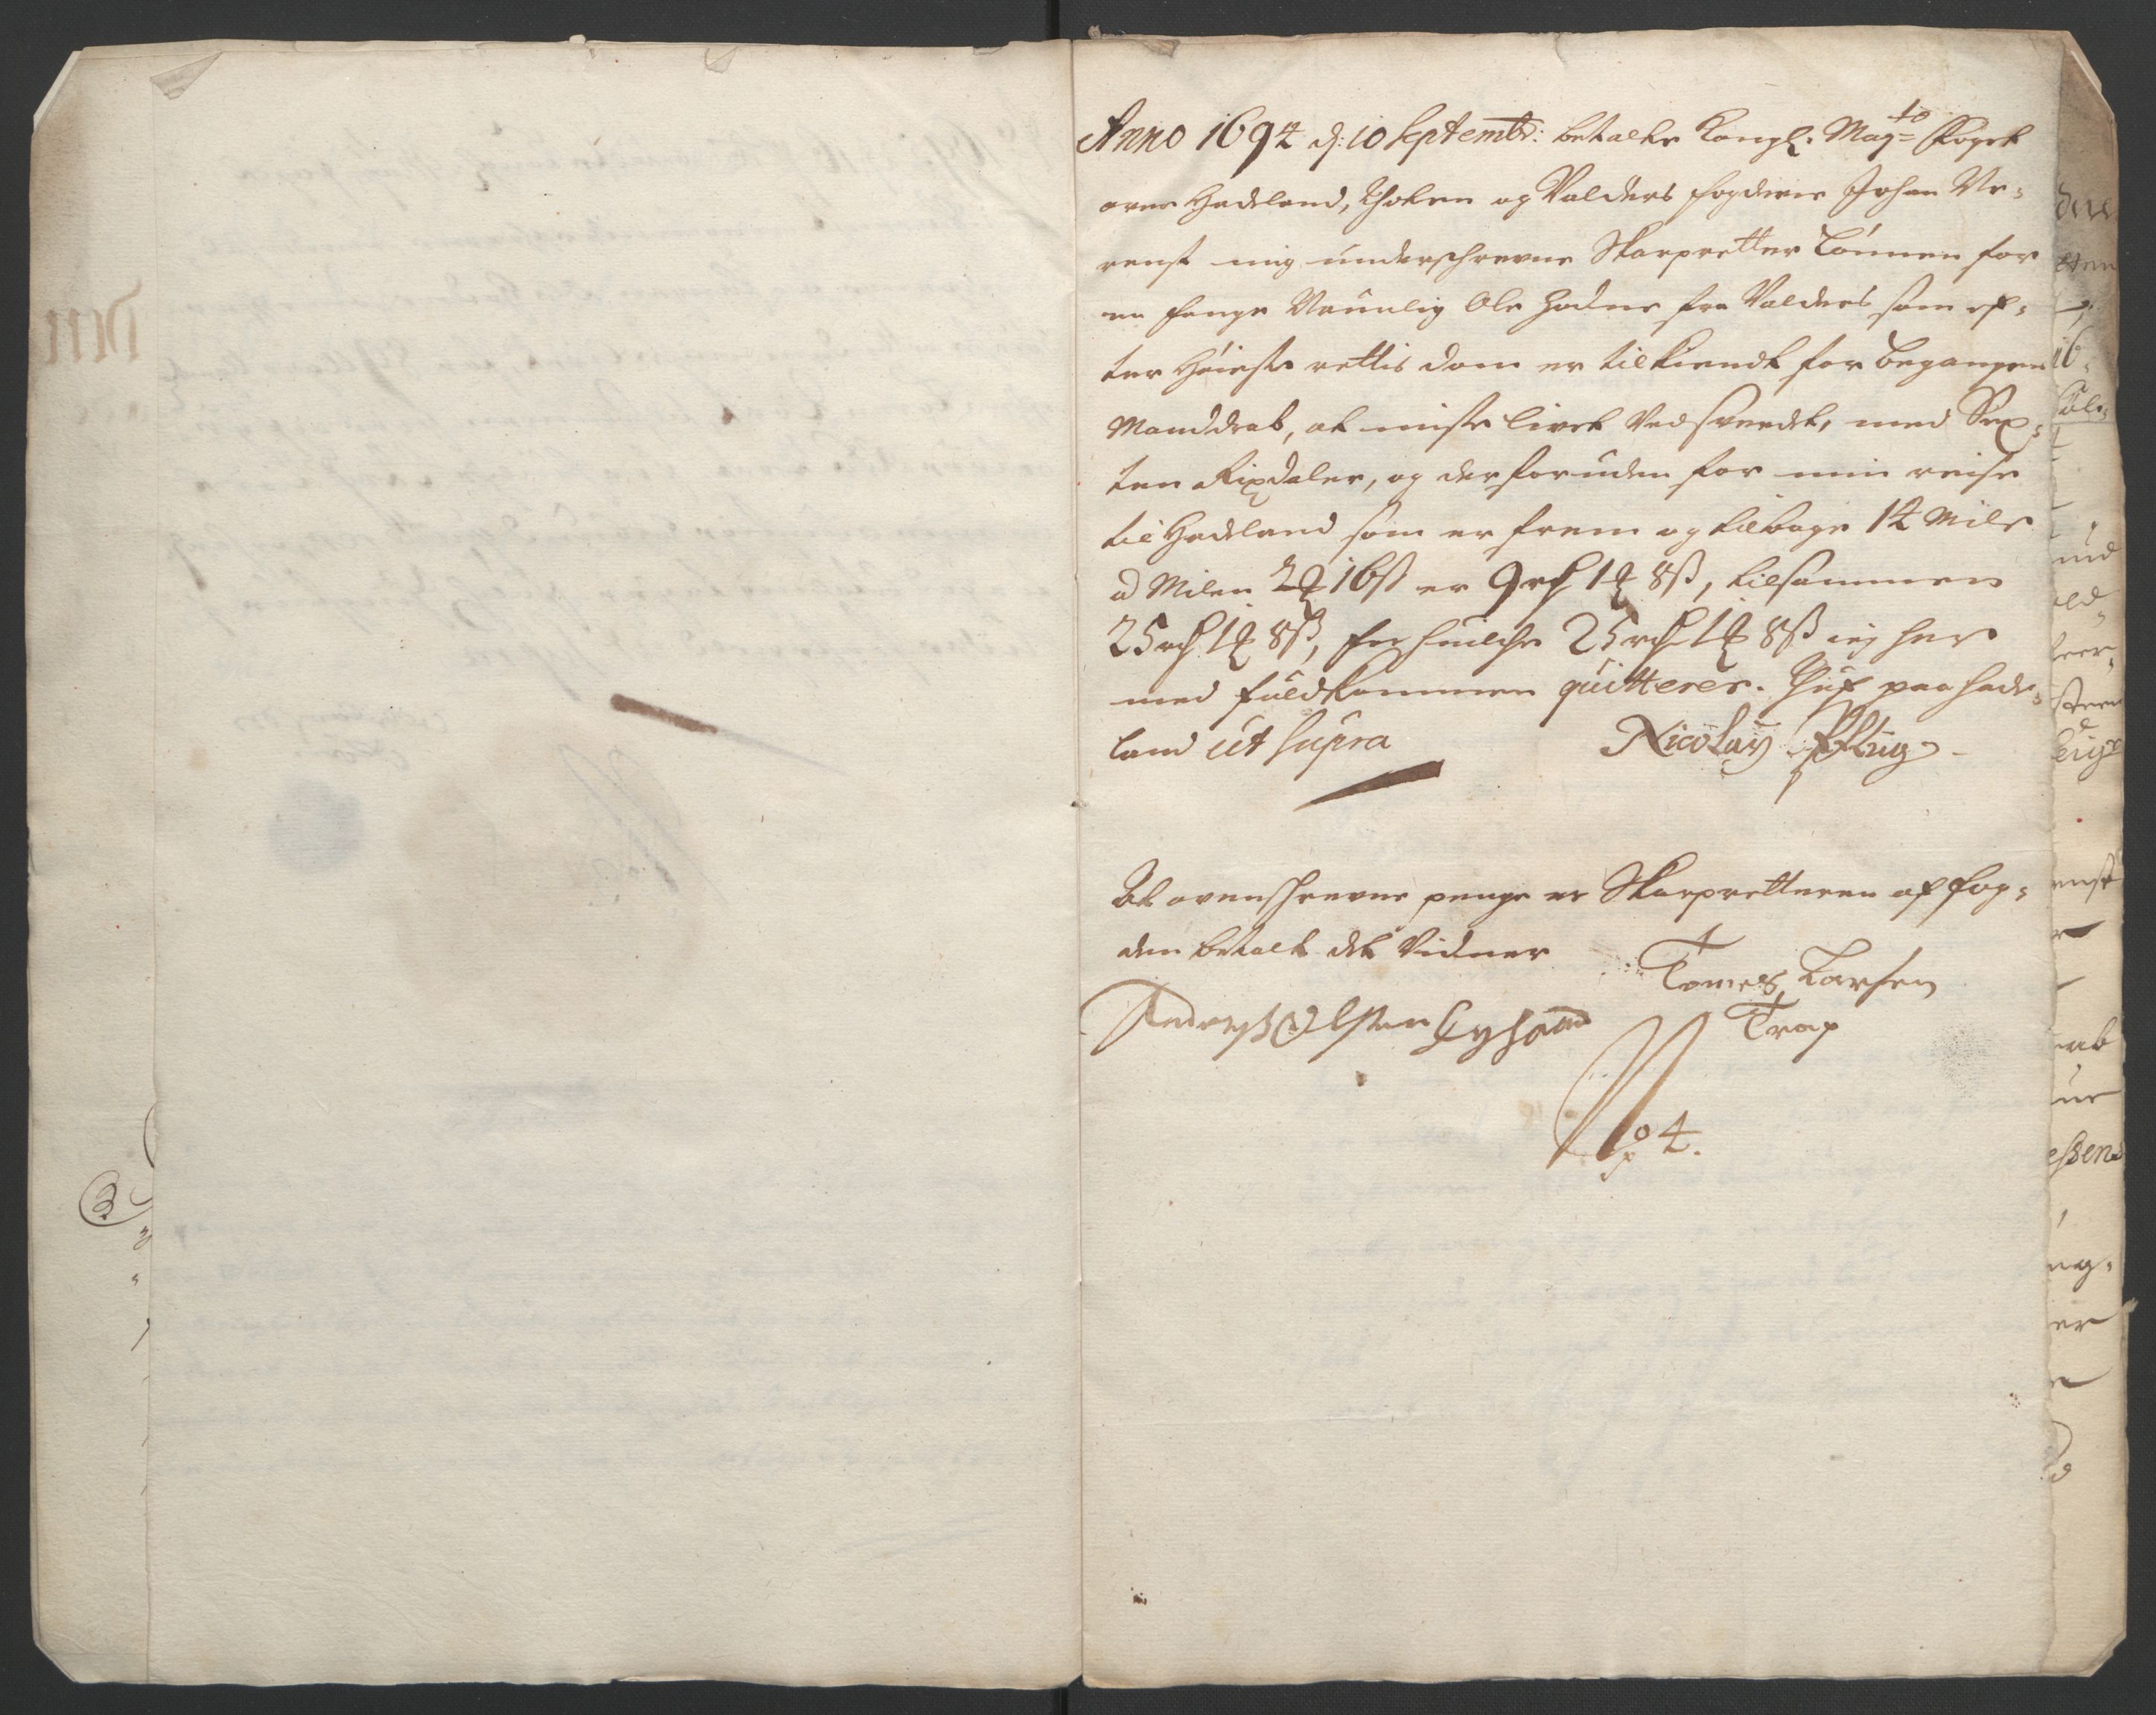 Anno 1694 d: 10 Septembr: betalte Kongl: May:to Foget
over Hadeland, Thoten og Valders fogderie Johan We-
renst mig underschrevne Skarpretter Lönnen for
en fange Naunlig Ole Hadne fra Valders som ef-
ter Høieste rettis dom er tilkiendt for begangen
Manddrab, at miste livet Ved sverdet, med Sex-
ten Rixdaler, og der foruden for min reise
til Hadeland som er frem og tilbage 14 Mile
ad Milen 2 16ß er 9 rd 1 8ß, tilsammen
25 rd 1 8ß, for huilche 25 rd 1 8ß ieg her
med fuldkommen quitterer. Thuf paa Hade-
land ut supra Nicolay Pflug
At ovenschrevne penge er Skarpretteren af fog-
den betalt det Vidner
Tomes Larsen
Trap
Anderß Olsen
No 4.